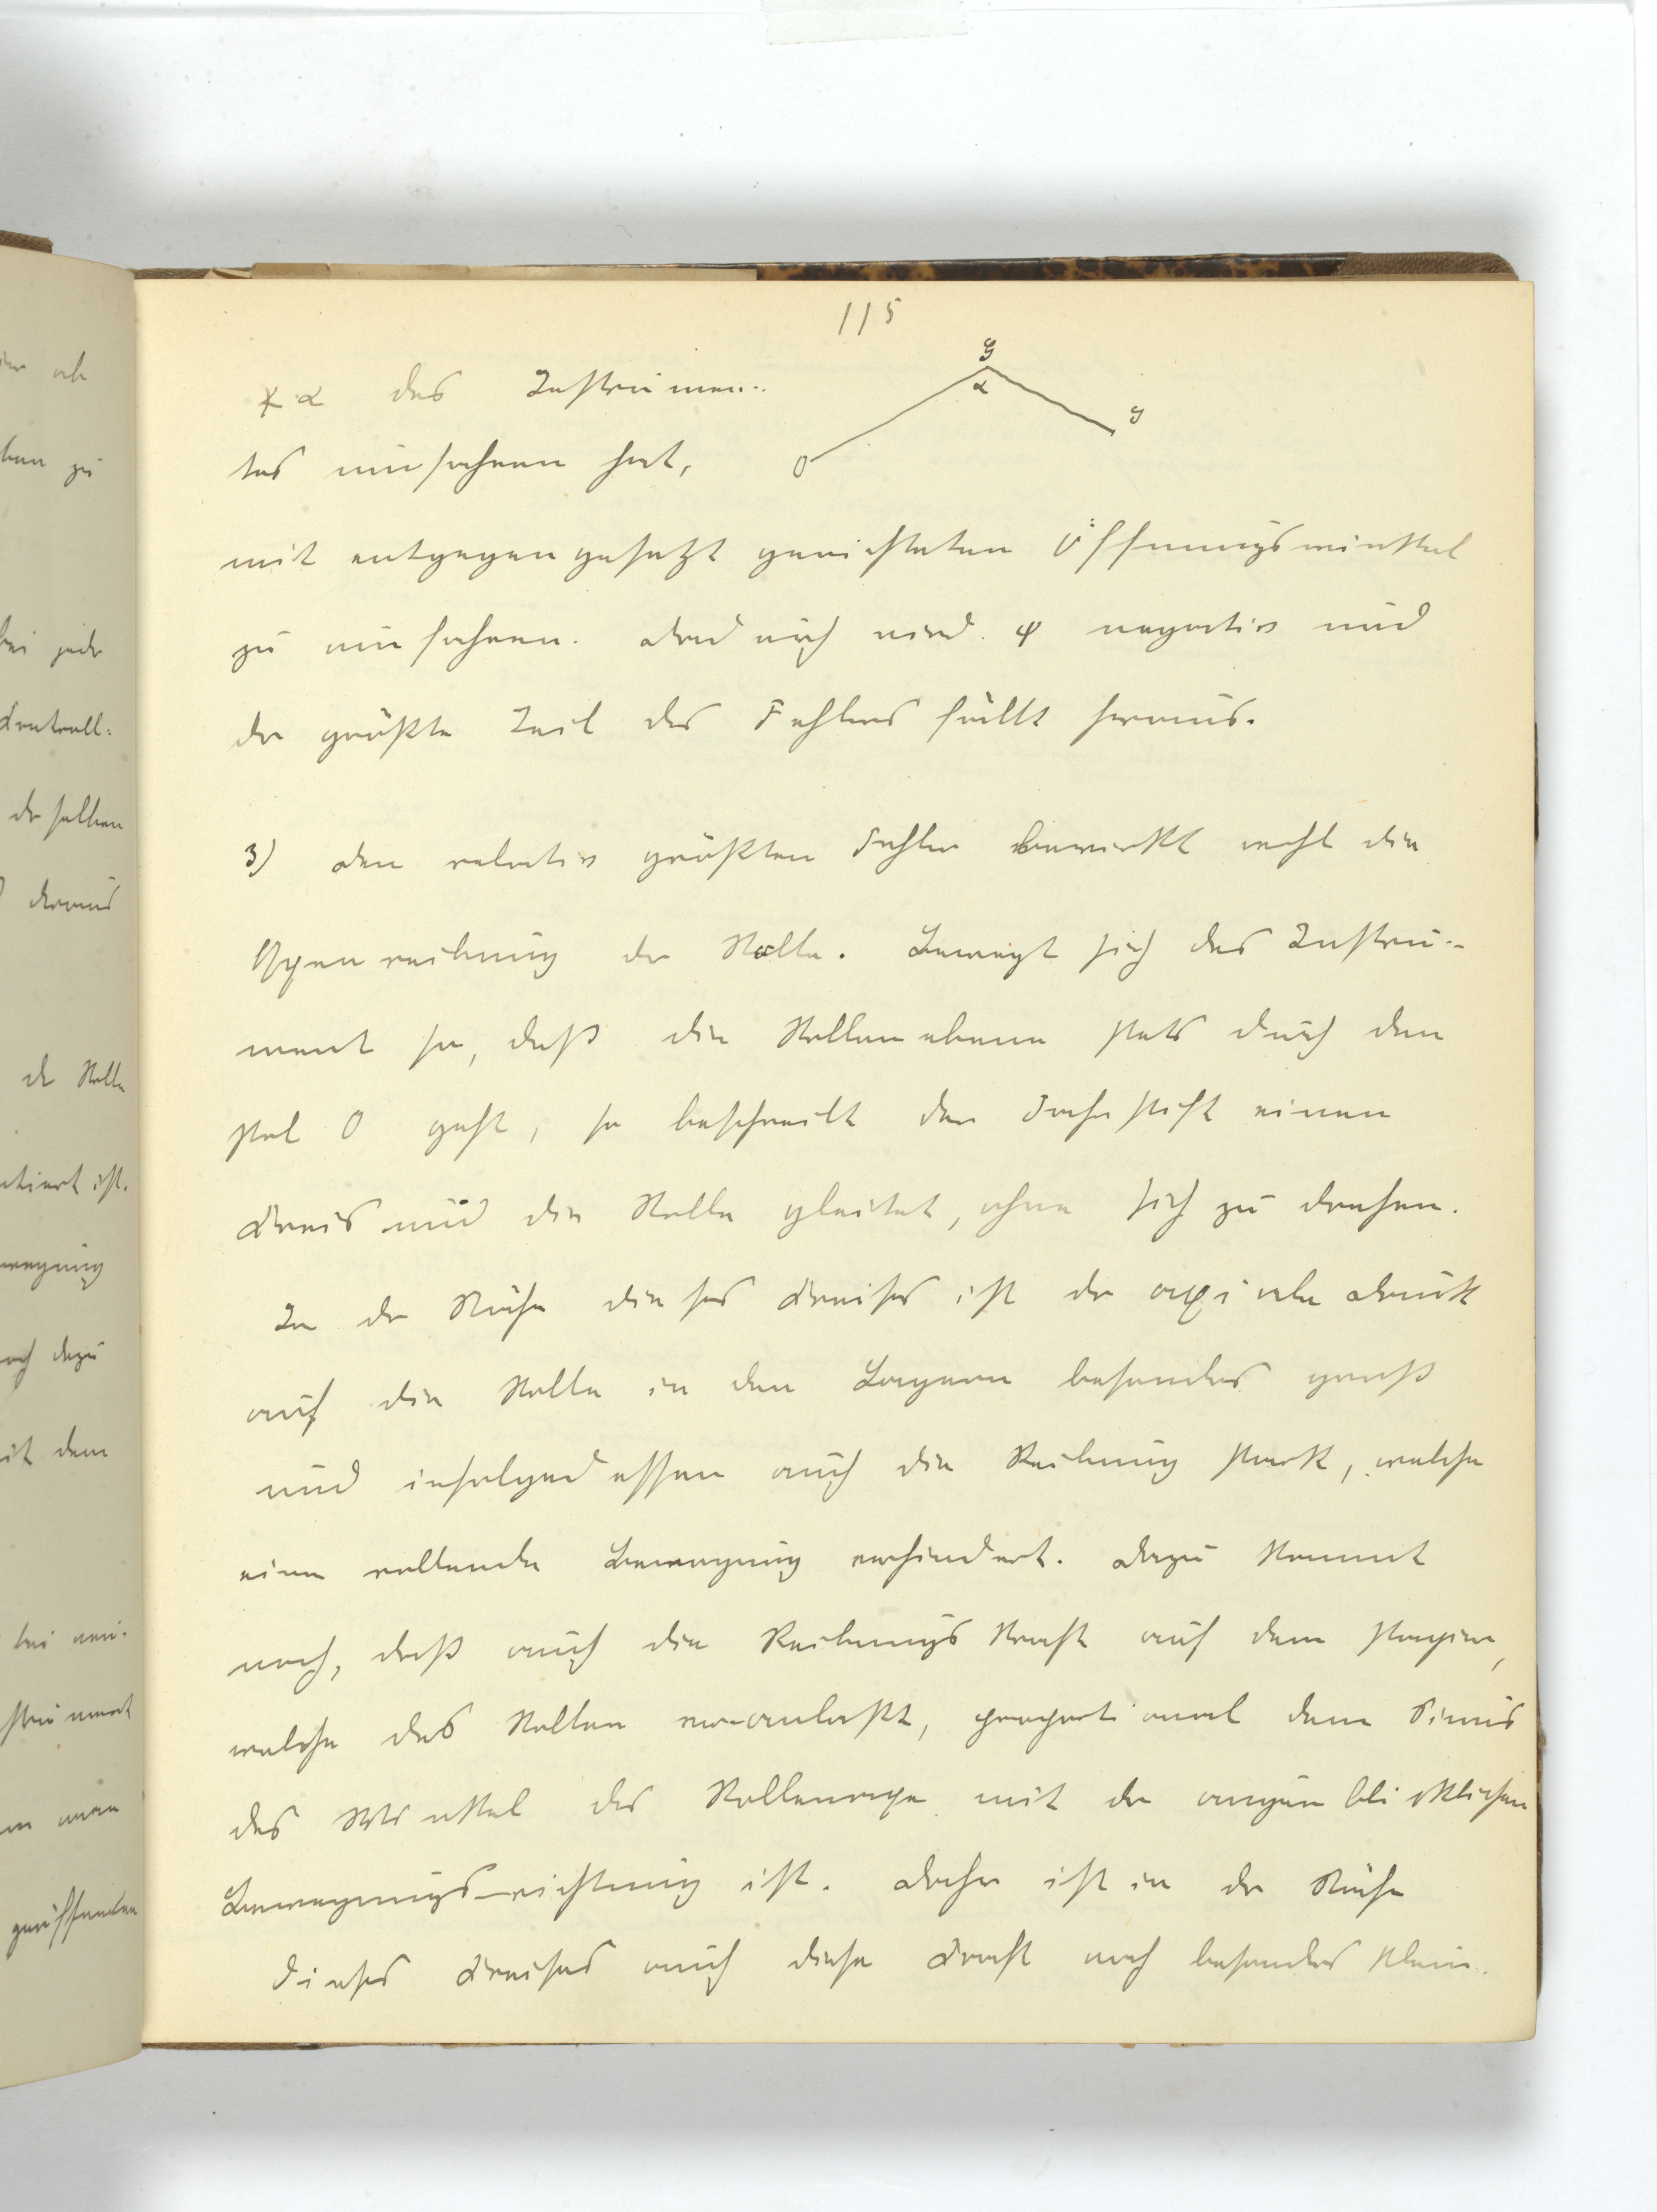 115
∢ α des Instrumen-
tes umfahren hat,
G
α
J
O
mit entgegengesetzt gerichteten Öffnungswinkel
zu umfahren. Dadurch wird φ negativ und
der größte Teil des Fehlers fällt heraus.
3) Den relativ größten Fehler bewirkt wohl die
Axenreibung der Rolle. Bewegt sich das Instru-
ment so, daß die Rollenebene stets durch den
Pol O geht, so beschreibt der Fahrstift einen
Kreis und die Rolle gleitet, ohne sich zu drehen.
In der Nähe dieses Kreises ist der axiale Druck
auf die Rolle in den Lagern besonders groß
und infolgedessen auch die Reibung stark, welche
eine rollende Bewegung verhindert. Dazu kommt
noch, daß auch die Reibungskraft auf dem Papier,
welche das Rollen veranlaßt, proportional dem Sinus
des Winkel der Rollenaxe mit der augenblicklichen
Bewegungsrichtung ist. Daher ist in der Nähe
dieses Kreises auch diese Kraft noch besonders klein.